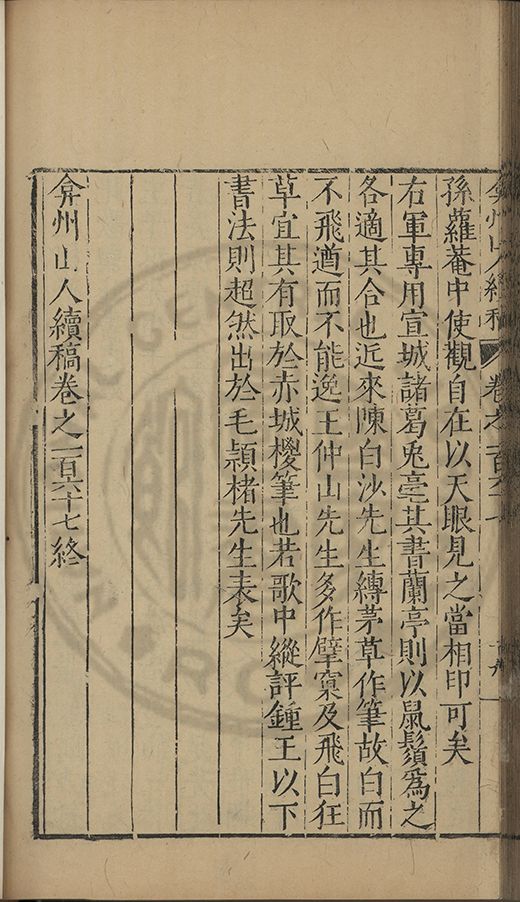 弇州山人續稿 卷之一百六十七
孫蘿菴中使觀自在以天眼見之當相印可矣
右軍專用宣城諸葛兎毫其書蘭亭則以鼠鬚爲之
各適其合也近來陳白沙先生縛茅草作筆故白而
不飛遒而不能逸王仲山先生多作擘窠及飛白狂
草宜其有取於赤城椶筆也若歌中縱評鍾王以下
書法則超然出於毛頴楮先生表矣
弇州山人續稿卷之一百六十七終